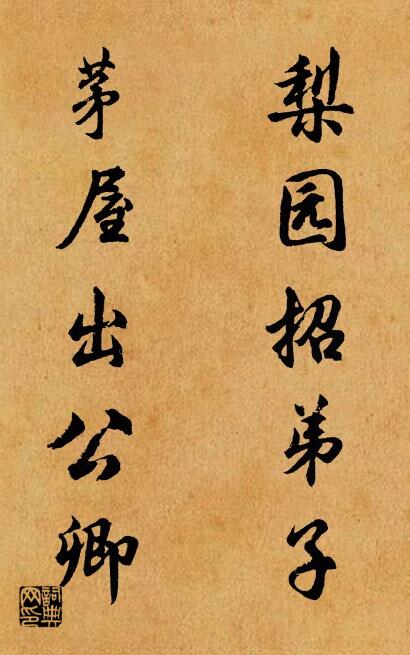 梨园招弟子
茅屋出公卿
詞典网印